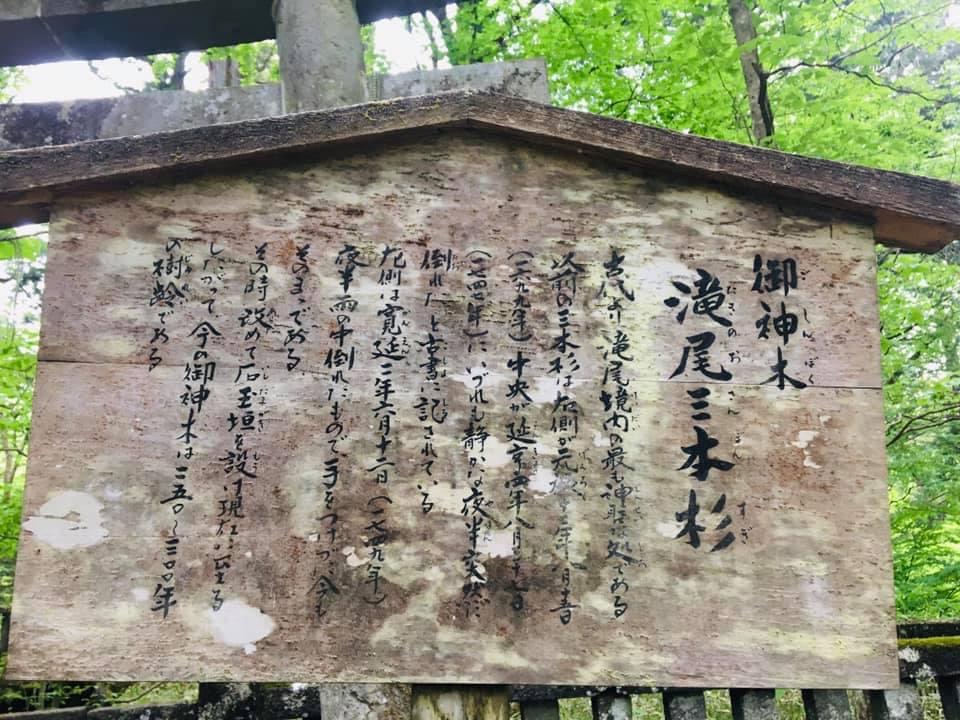 御神木
滝尾三本杉
古代より滝尾境内の最も神聖な処である
以前の三本杉は右側が元禄十二年八月
(一六九九年)中央が延享四年八月
(一七四七年)にいづれも静かな夜半突然
倒れたと古書に記されている
左側は寛延二年六月十二日(一七四九年)
夜半雨の中倒れたもので手をつけづ今も
そのまゝである
その時改めて石玉垣を設け現在に至る
したがって今の御神木は三五〇〜三〇〇年
の樹齢である